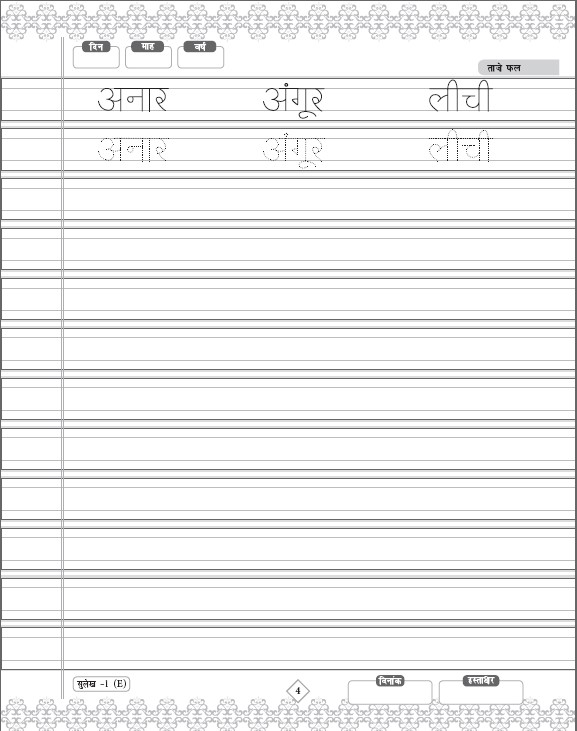 दिन माह वर्ष
ताजे फल
अनार अंगूर लीची
अनार अंगूर लीची
सुलेख -1 (E) 4 दिनांक हस्ताक्षर